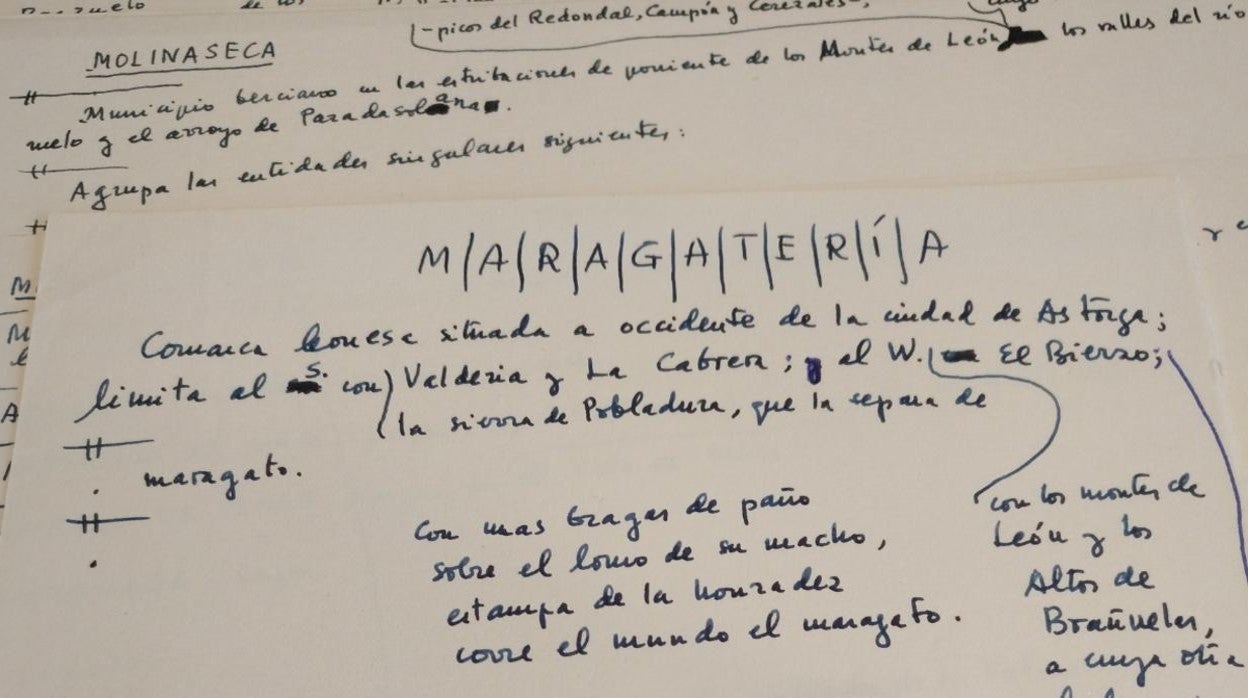 -picos del Redondal, Campoía y Cerezales-,
MOLINASECA
Municipio berciano en las estribaciones de poniente de los Montes de León los valles del río
ruelo y el arroyo de Paradasolana.
Agrupa las entidades singulares siguientes:
M/A/R/A/G/A/T/E/R/Í/A
Comarca leonesa situada a occidente de la ciudad de Astorga;
limita al S. con Valdería y La Cabrera; y al W. El Bierzo;
la sierra de Pobladura, que la separa de
maragato.
Con unas bragas de paño
sobre el lomo de su macho,
estampa de la honradez
corre el mundo el maragato.
con los montes de
León y los
Altos de
Brañuelas,
a cuya otra